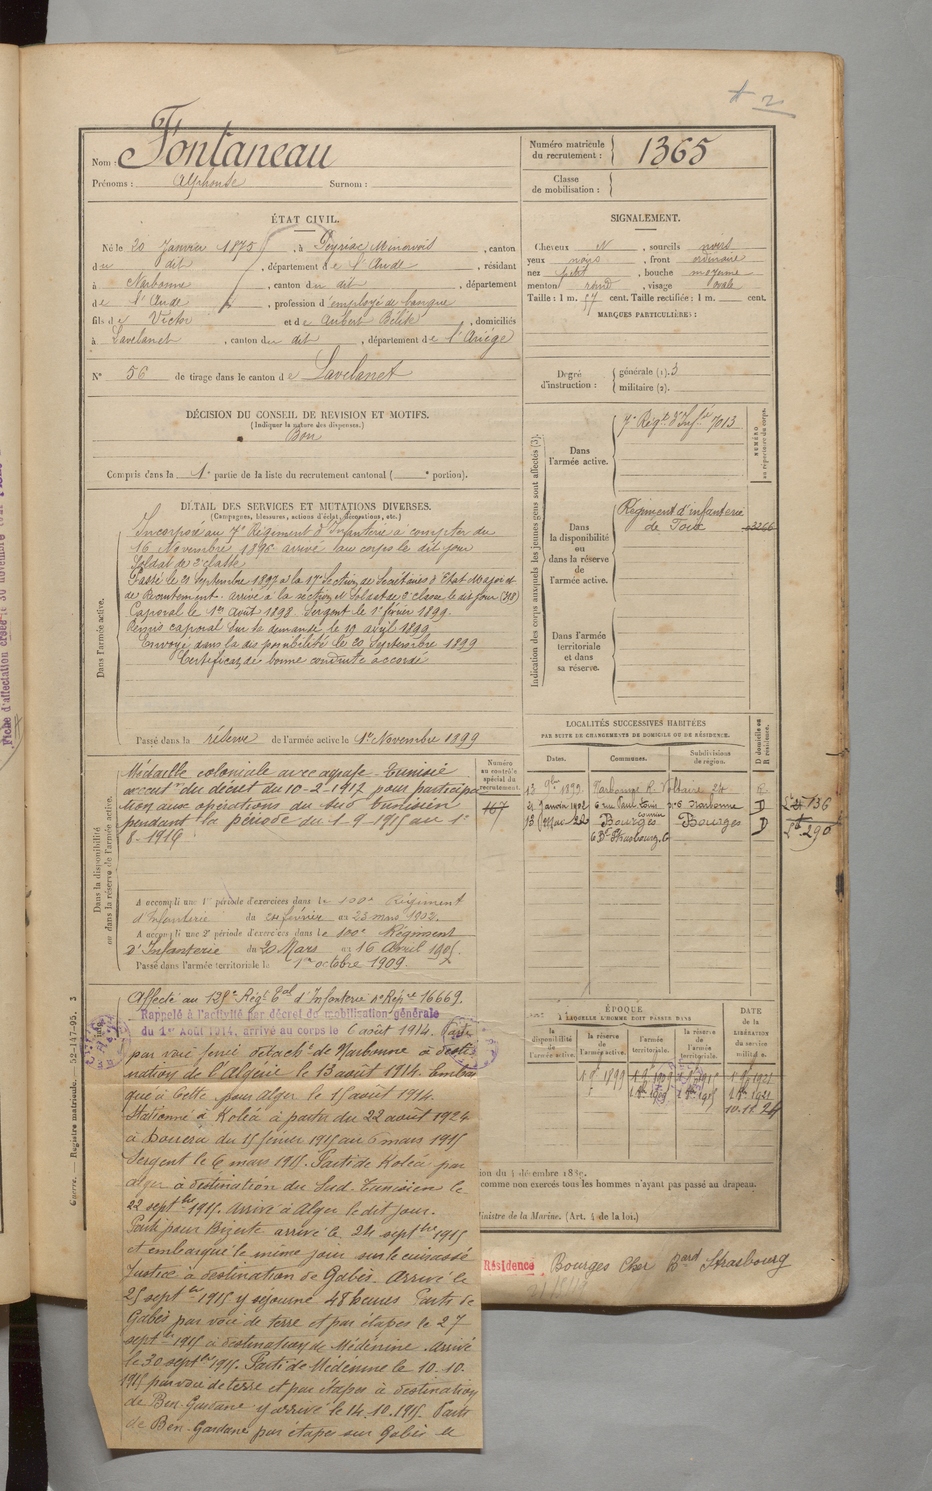 Nom : Fontaneau
Prénoms : Alphonse Surnom :
Numéro matricule du recrutement : 1365
Classe de mobilisation :
ÉTAT CIVIL.
Né le 20 Janvier 1875, à Peyriac Minervois, canton
du dit, département de l'Aude, résidant
à Narbonne, canton du dit, département
de l'Aude, profession d'employé de banque
fils de Victor et de Aubert Bélik, domiciliés
à Lavelanet, canton du dit, département de l'Ariège
N° 56 de tirage dans le canton de Lavelanet
SIGNALEMENT.
Cheveux N, sourcils noirs
yeux noirs, front ordinaire
nez petit, bouche moyenne
menton rond, visage ovale
Taille : 1 m. 57 cent. Taille rectifiée : 1 m. cent.
MARQUES PARTICULIÈRES :
Degré d'instruction : générale (1). 3
militaire (2).
DÉCISION DU CONSEIL DE REVISION ET MOTIFS.
(Indiquer la nature des dispenses.)
Bon
Compris dans la 1e partie de la liste du recrutement cantonal ( e portion).
DÉTAIL DES SERVICES ET MUTATIONS DIVERSES.
(Campagnes, blessures, actions d'éclat, décorations, etc.)
Dans l'armée active.
Incorporé au 7e Régiment d'Infanterie à compter du
16 Novembre 1896 arrivé au corps le dit jour
Soldat de 2e classe
Passé le 21 Septembre 1897 à la 17e Section de Secrétaires d'Etat Major et
de Recrutement. arrivé à la section et Soldat de 2e classe le dit jour (318)
Caporal le 1er Août 1898. Sergent le 1er février 1899.
Remis caporal sur sa demande le 19 avril 1899
Envoyé dans la disponibilité le 20 Septembre 1899
Certificat de bonne conduite accordé
Passé dans la réserve de l'armée active le 1er Novembre 1899
Indication des corps auxquels les jeunes gens sont affectés (3).
NUMÉRO au répertoire du corps.
Dans l'armée active.
7e Régt d'Inftie 7013
Dans la disponibilité ou dans la réserve de l'armée active.
Régiment d'infanterie
de Foix 3266
Dans l'armée territoriale et dans sa réserve.
Dans la disponibilité ou dans la réserve de l'armée active.
Numéro au contrôle spécial du recrutement.
167
Médaille coloniale avec agrafe Tunisie
en exécut° du décret du 10-2-1917 pour participa
tion aux opérations du Sud Tunisien
pendant la période du 1-9-1915 au 1er
8-1916
A accompli une 1e période d'exercices dans le 100e Régiment
d'Infanterie du 24 février au 23 mars 1902.
A accompli une 2e période d'exercices dans le 100e Régiment
d'Infanterie du 20 Mars au 16 Avril 1905.
Passé dans l'armée territoriale le 1er octobre 1909.
LOCALITÉS SUCCESSIVES HABITÉES
PAR SUITE DE CHANGEMENTS DE DOMICILE OU DE RÉSIDENCE.
Dates. Communes. Subdivisions de région. D domicile ou R résidence.
13 9bre 1899 Narbonne R. Voltaire 24 R
21 Janvier 1902 Narbonne D 136
13 22 Bourges Bourges D 290
6 Bd Strasbourg
ÉPOQUE
à LAQUELLE L'HOMME DOIT PASSER DANS
la disponibilité de l'armée active. la réserve de l'armée active. l'armée territoriale. la réserve de l'armée territoriale.
DATE de la LIBÉRATION du service militaire.
10.11.24
Affecté au 125e Régt Tal d'Infanterie n° Répre 16669.
Rappelé à l'activité par décret de mobilisation générale
du 1er Août 1914, arrivé au corps le 6 août 1914. Parti
par voie ferrée détacht de Narbonne à desti-
nation de l'Algérie le 13 août 1914. Embar
qué à Cette pour Alger le 15 août 1914.
Stationné à Koléa à partir du 22 août 1924
à Douera du 15 février 1915 au 6 mars 1915
Sergent le 6 mars 1915. Parti de Koléa par
Alger à destination du Sud-Tunisien le
22 septbre 1915. Arrivé à Alger le dit jour.
Parti pour Bizerte arrivé le 24 septbre 1915
et embarqué le même jour sur le cuirassé
Justice à destination de Gabès. Arrivé le
25 septbre 1915 y séjourné 48 heures. Parti de
Gabès par voie de terre et par étapes le 27
septbre 1915 à destination de Médénine. Arrivé
le 30 septbre 1915. Parti de Médénine le 10.10.
1915 par voie de terre et par étapes à destination
de Ben-Gardane y arrivé le 14.10.1915. Parti
de Ben-Gardane par étapes sur Gabès le
comme non exercés tous les hommes n'ayant pas passé au drapeau.
Ministre de la Marine. (Art. 4 de la loi.)
Résidence Bourges Cher Bard Strasbourg
Guerre. — Registre matricule. — 52-147-95. 3